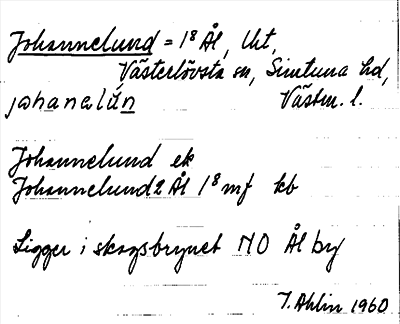 Johannelund = 1⁸ Ål, lht,
Västerlövsta sn, Simtuna hd,
johanalún Västm. l.
Johannelund ek
Johannelund 2 Ål 1⁸ mf kb
Ligger i skogsbrynet NO Ål by
T. Ahlin 1960